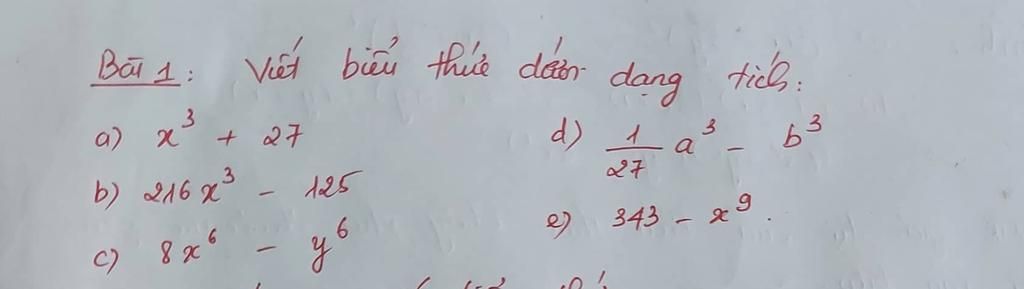 Bài 1: Viết biểu thức dưới dạng tích:
a) x³ + 27
b) 216x³ - 125
c) 8x⁶ - y⁶
d) 1/27 a³ - b³
e) 343 - x⁹.